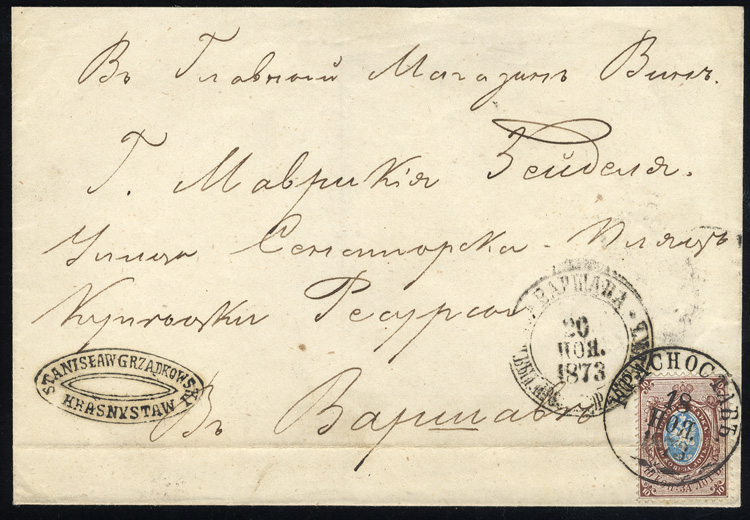 Въ Главный Магазинъ Винъ.
Г. Маврикія Зейделя.
Улица Сенаторска - Пляцъ
Купецкой Ресурсы
Въ Варшавѣ
STANISŁAW GRZĄDKOWSKI
KRASNYSTAW
ВАРШАВА
20
НОЯ.
1873
КРАСНОСТАВЪ
18
НОЯ.